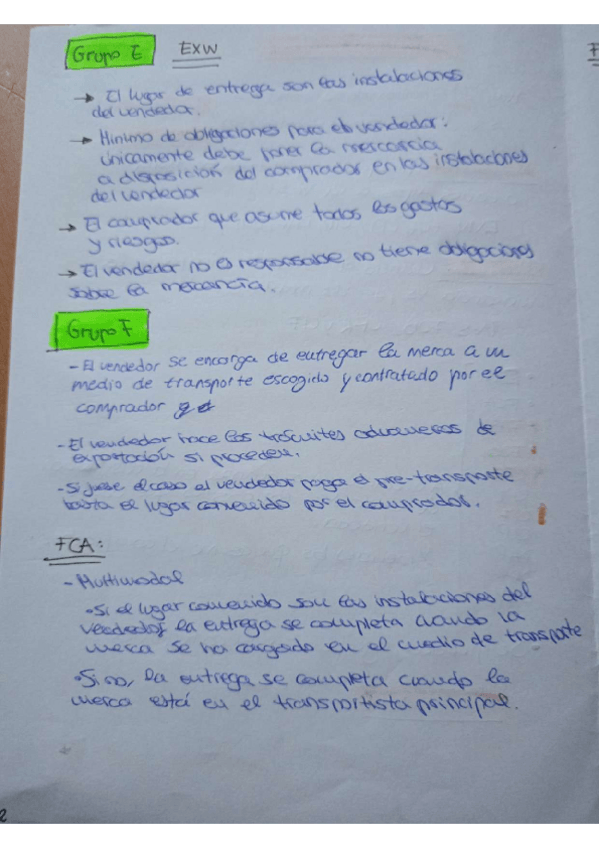 Grupo E EXW
→ El lugar de entrega son las instalaciones
del vendedor.
→ Minimo de obligaciones para el vendedor:
únicamente debe poner la mercancia
a disposición del comprador en las instalaciones
del vendedor
→ El comprador que asume todos los gastos
y riesgos.
→ El vendedor no es responsable no tiene obligaciones
sobre la mercancía.
Grupo F
- El vendedor se encarga de entregar la merca a un
medio de transporte escogido y contratado por el
comprador
- El vendedor hace los trámites aduaneros de
exportación si proceden.
- Si fuese el caso el vendedor paga el pre-transporte
hasta el lugar convenido por el comprador.
FCA:
- Multimodal
• Si el lugar convenido son las instalaciones del
vendedor, la entrega se completa cuando la
merca se ha cargado en el medio de transporte
• Si no, la entrega se completa cuando la
merca está en el transportista principal.
2
F